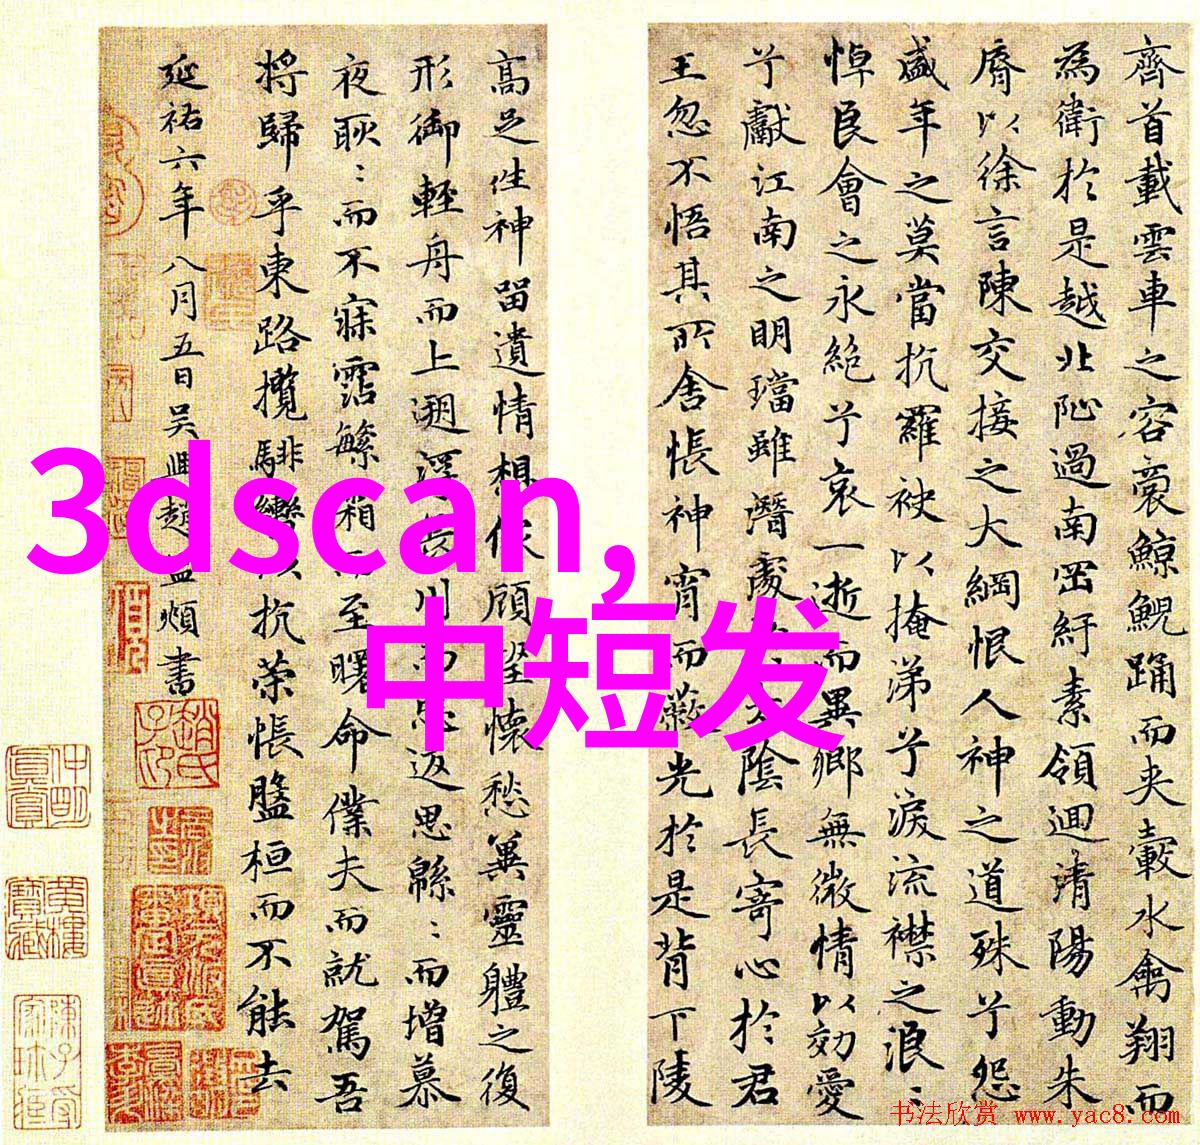 齊首載雲車之容裔鯨鯢踊而夾轂水禽翔而
為衛於是越北沚過南岡紆素領迴清陽動朱
脣以徐言陳交接之大綱恨人神之道殊兮怨
盛年之莫當抗羅袂以掩涕兮淚流襟之浪〻
悼良會之永絕兮哀一逝而異鄉無微情以効愛
兮獻江南之明璫雖潛處於太陰長寄心於君
王忽不悟其所舍悵神宵而蔽光於是背下陵
高足往神留遺情想像顧望懷愁兾靈體之復
形御輕舟而上遡浮長川而忘返思緜〻而增慕
夜耿〻而不寐霑繁霜而至曙命僕夫而就駕吾
將歸乎東路攬騑轡以抗策悵盤桓而不能去
延祐六年八月五日吳興趙孟頫書
3dscan,
中短发
书法欣赏 www.yac8.com